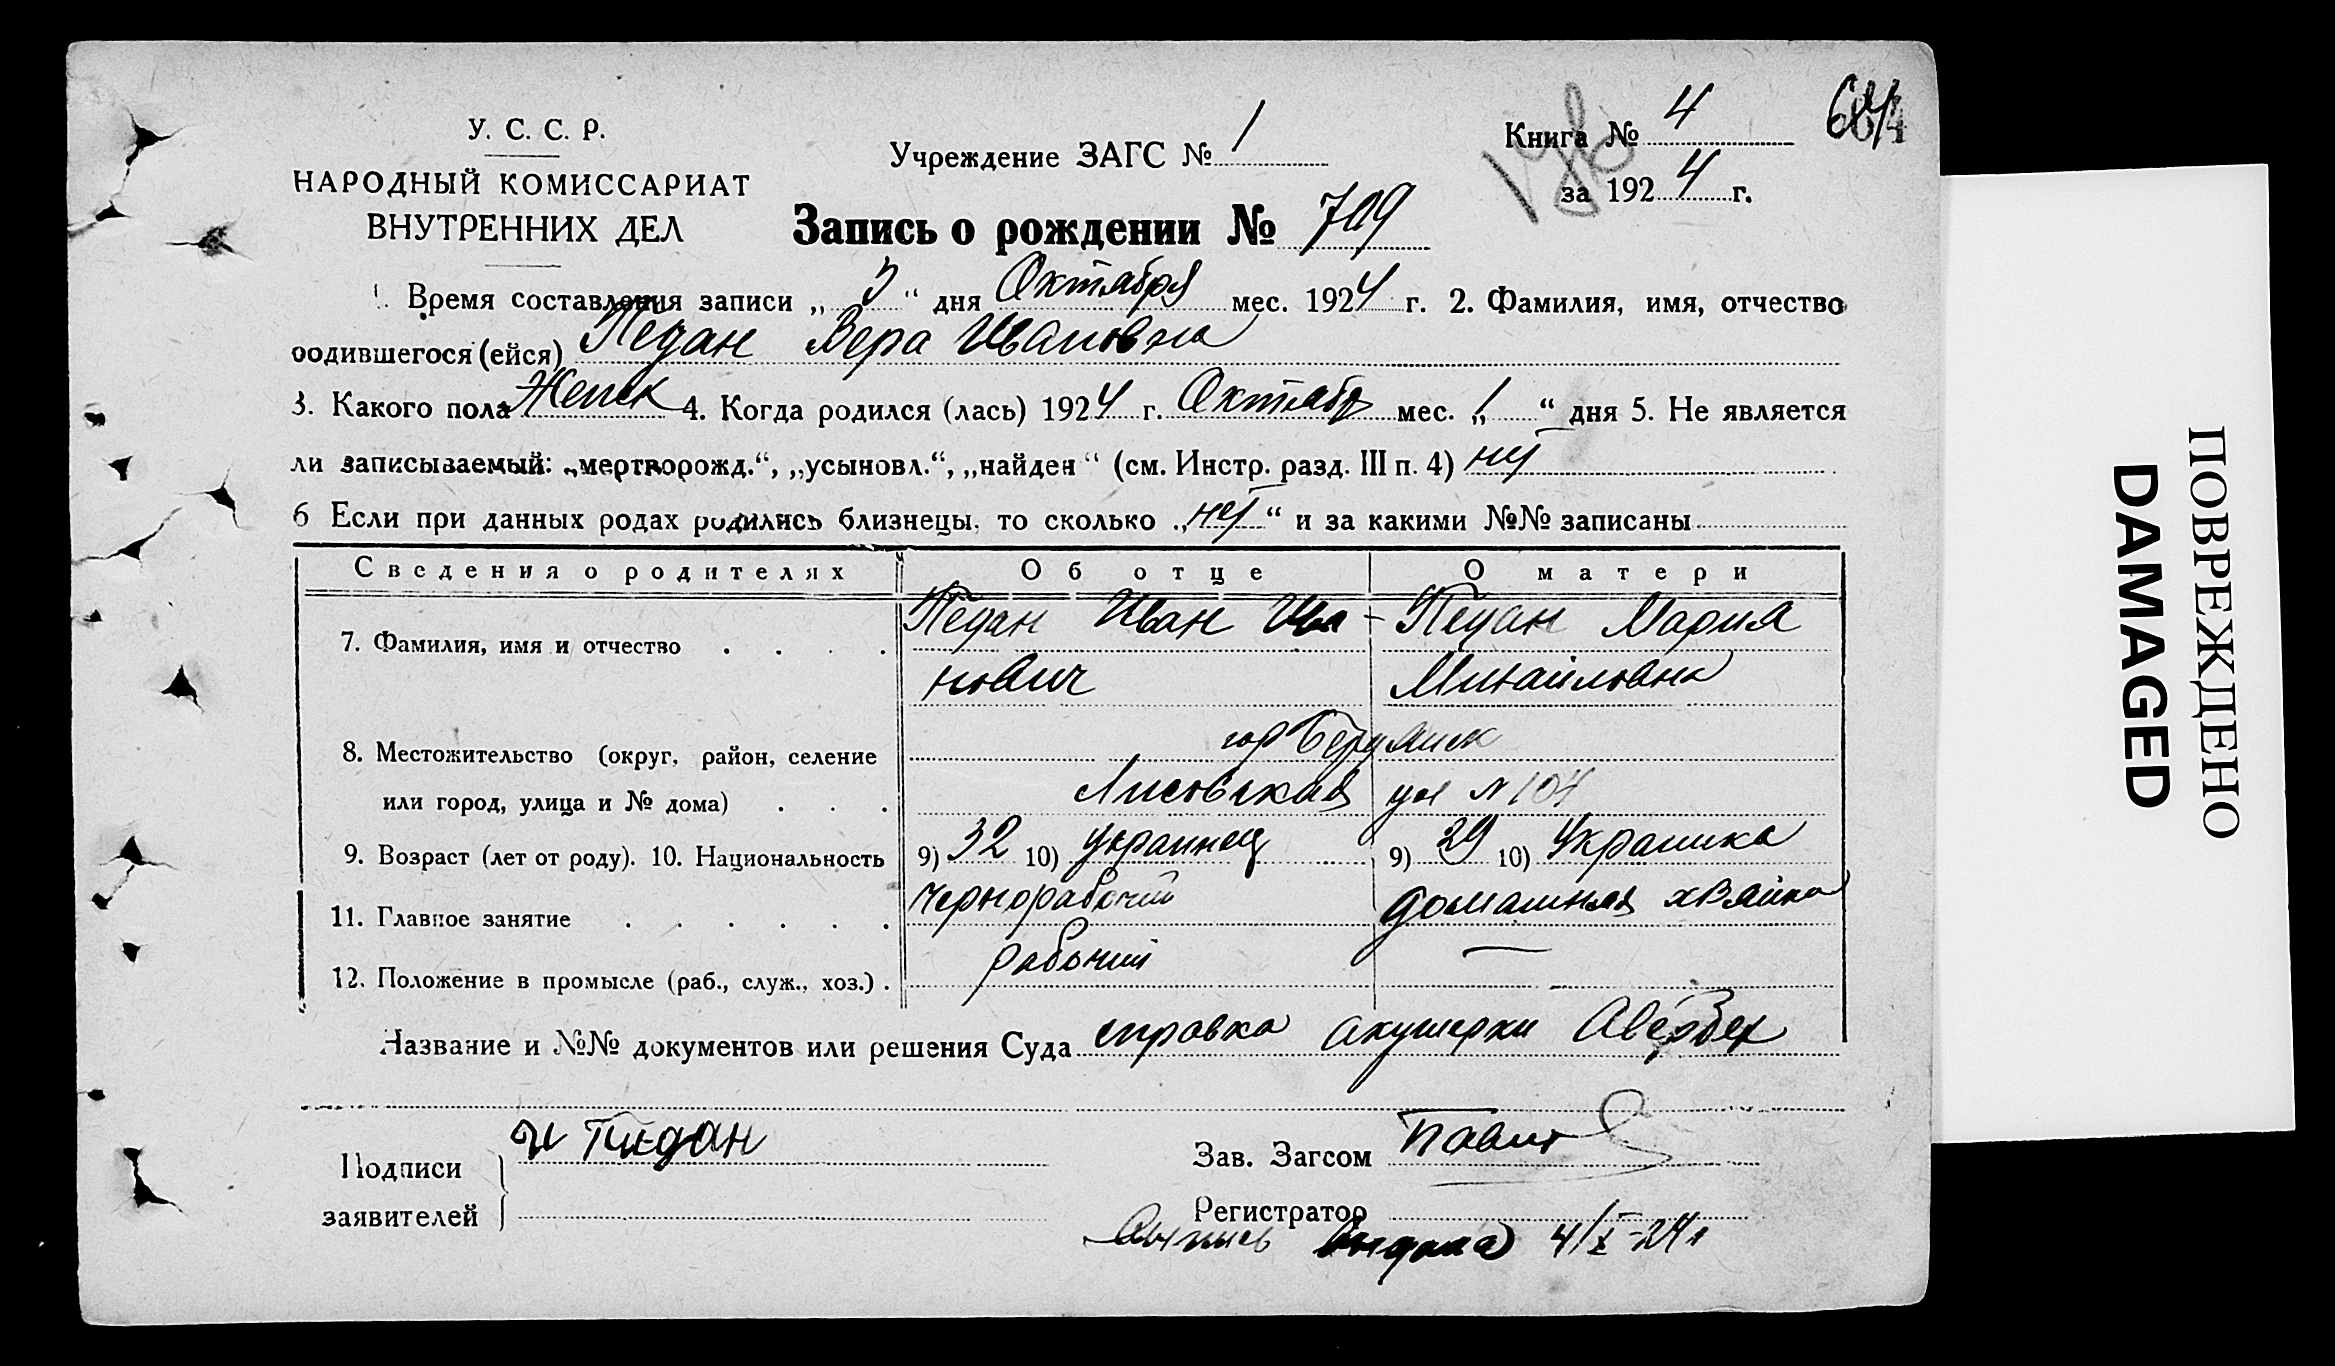 У. С. С. Р.
НАРОДНЫЙ КОМИССАРИАТ
ВНУТРЕННИХ ДЕЛ
Учреждение ЗАГС № 1
Книга № 4
за 1924 г.
Запись о рождении № 709
1. Время составления записи „3“ дня Октября мес. 1924 г. 2. Фамилия, имя, отчество
родившегося (ейся) Педан Вера Ивановна
3. Какого пола Женск 4. Когда родился (лась) 1924 г. Октябр мес. „1“ дня 5. Не является
ли записываемый: „мертворожд.“, „усыновл.“, „найден“ (см. Инстр. разд. III п. 4) нет
6 Если при данных родах родились близнецы, то сколько „нет“ и за какими №№ записаны
Сведения о родителях Об отце О матери
7. Фамилия, имя и отчество Педан Иван Ива- Педан Мария
нович Михайловна
8. Местожительство (округ, район, селение гор
или город, улица и № дома) Лисовская ул № 104
9. Возраст (лет от роду). 10. Национальность 9) 32 10) украинец 9) 29 10) Украинка
11. Главное занятие чернорабочий домашняя хзяйка
12. Положение в промысле (раб., служ., хоз.) рабочий —
Название и №№ документов или решения Суда справка акушерки Авербех
Подписи
заявителей
И Педан
Зав. Загсом
Регистратор
выдана 4/X-24 г
ПОВРЕЖДЕНО
DAMAGED